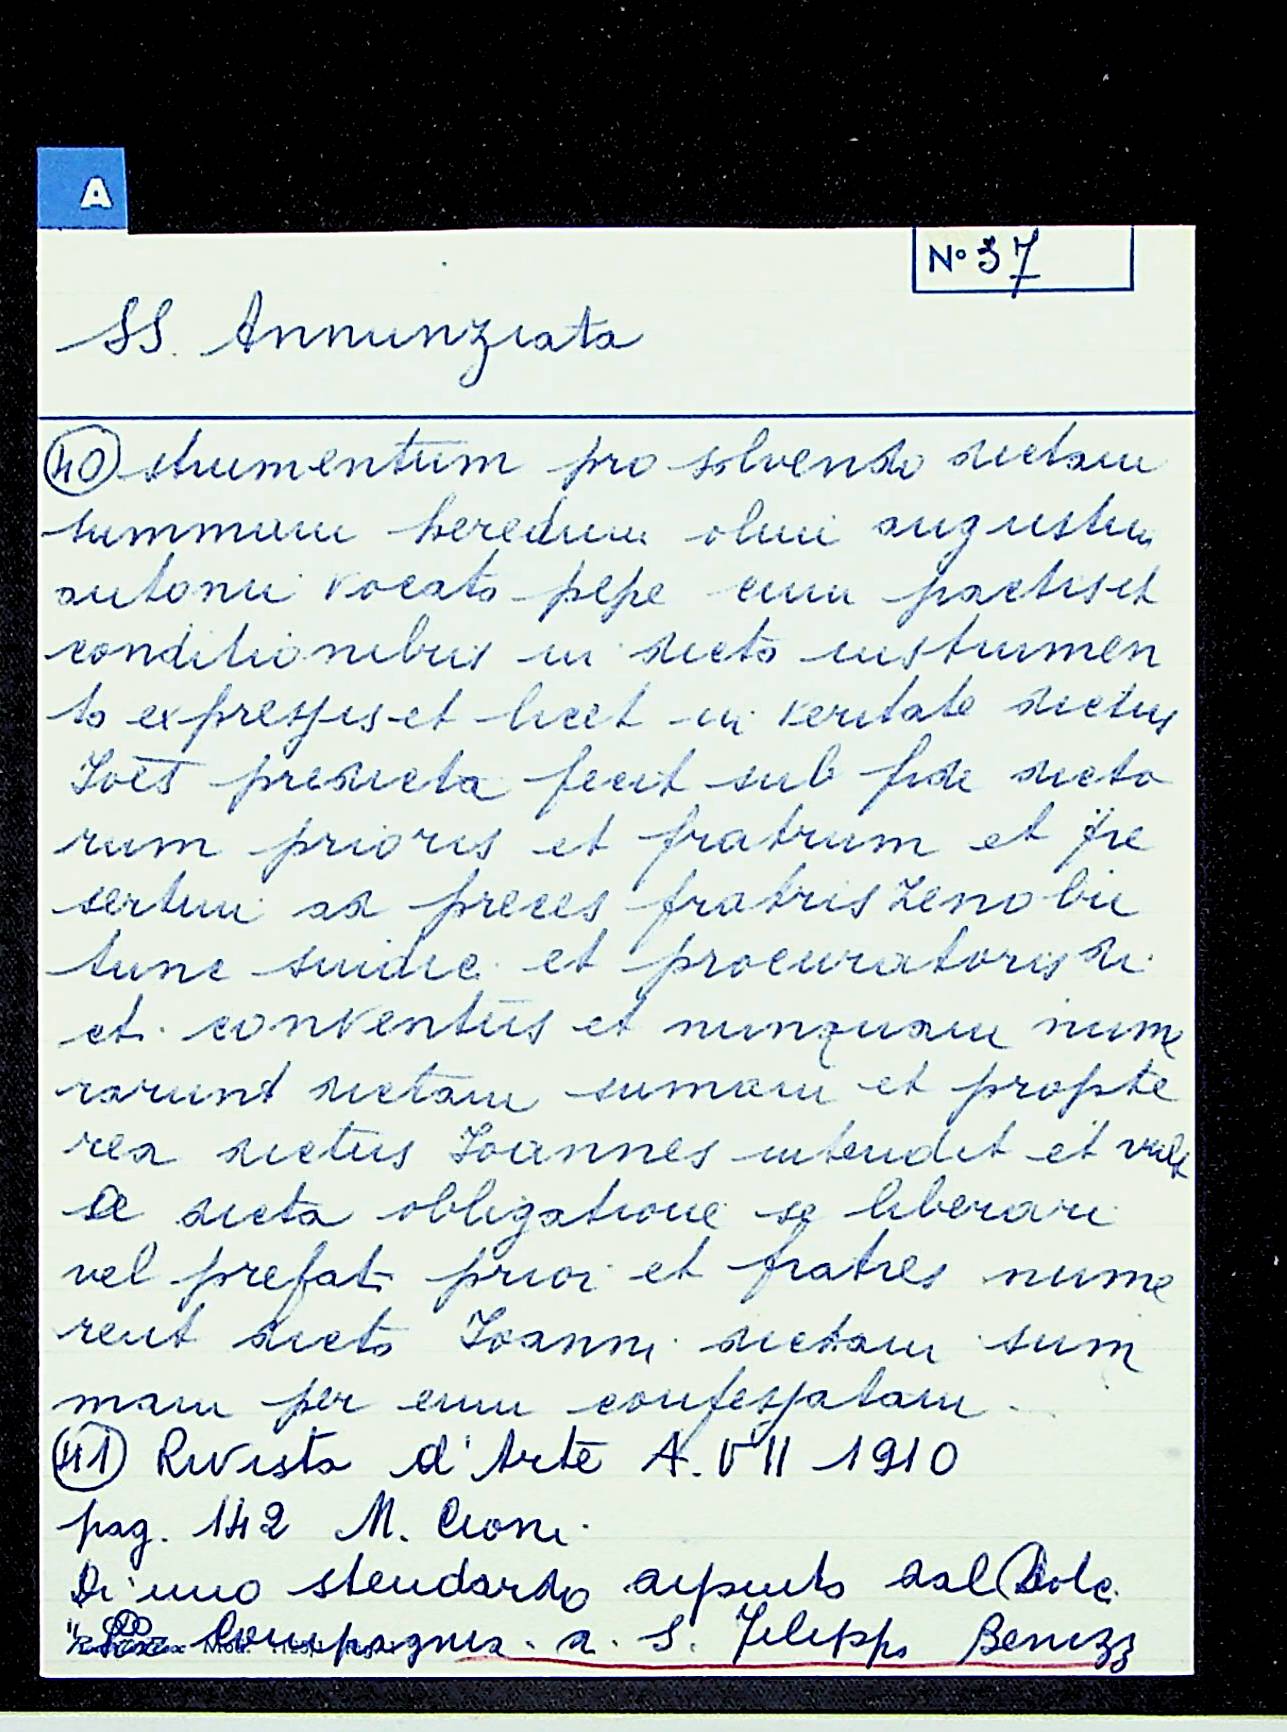 A
N° 37
SS. Annunziata
40 strumentum pro solvendo dictam
summam heredum olim augustini
antonii vocato pepe cum pactis et
conditionibus in dicto instrumen
to expressis et licet in veritate dictus
Ioēs predicta fecit sub fide dicto
rum prioris et fratrum et pre
sertim ad preces fratris Zenobii
tunc sindic et procuratoris di
ct. conventus et nunquam nume
rarunt dictam sumam et propte
rea dictus Ioannes intendit et vult
a dicta obligatione se liberari
vel prefati priori et fratres nume
rent dicto Ioanni dictam sum
mam per eum confessatam.
41 Rivista d'Arte A. VII 1910
pag. 142 M. Cioni.
Di uno stendardo dipinto dal Dolc.
Compagnia. a. S. Filippo Benizzi